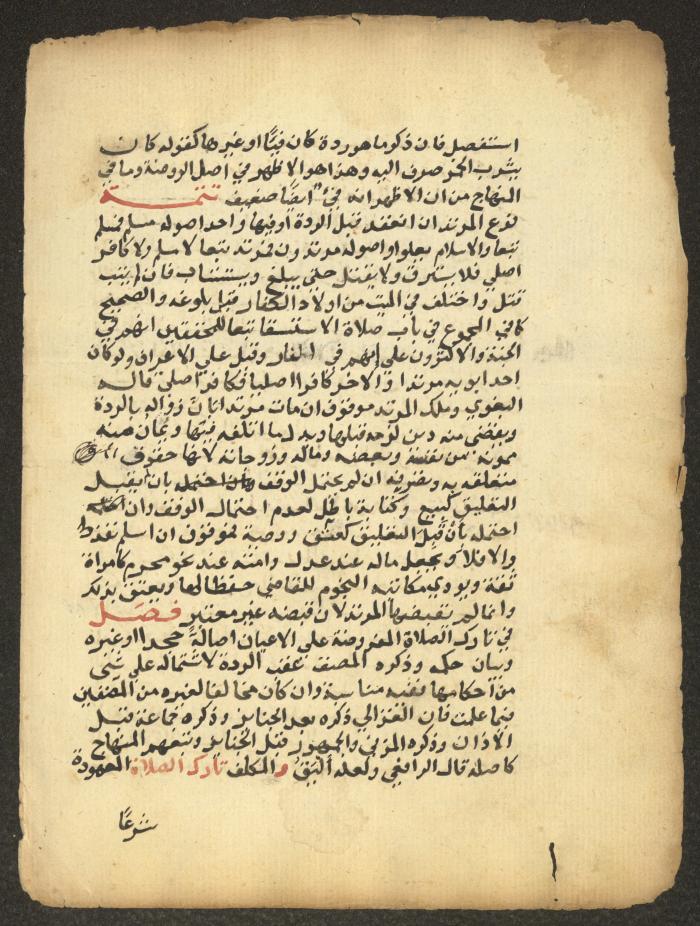 استفصل فان ذكر ما هو ردة كان فيئا او غيرها كقوله كان
يشرب الخمر صرف اليه وهذا هو الاظهر في اصل الروضة وما في
المنهاج من ان الاظهر انه فيء ايضا ضعيف تتمـــــة
فرع المرتد ان انعقد قبل الردة او فيها واحد اصوله مسلم فمسلم
تبعا والاسلام يعلو او اصوله مرتدون فمرتد تبعا لا مسلم ولا كافر
اصلي فلا يسترق ولا يقتل حتى يبلغ ويستتاب فان لم يتب
قتل واختلف في الميت من اولاد الكفار قبل بلوغه والصحيح
كما في المجموع في باب صلاة الاستسقا تبعا للمحققين انهم في
الجنة والاكثرون على انهم في النار وقيل على الاعراف ولو كان
احد ابويه مرتدا والاخر كافرا اصليا فكافر اصلي قاله
البغوي وملك المرتد موقوف ان مات مرتدا بان زواله بالردة
ويقضى منه دين لزمه قبلها وبدل ما اتلفه فيها ويمان منه
ممونه من نفسه وبعضه وماله وزوجاته لانها حقوق
متعلقه به وتصرفه ان لم يحتمل الوقف بان لم يقبل
التعليق كبيع وكتابة باطل لعدم احتماله الوقف وان
احتمله بان قبل التعليق كعتق ووصية فموقوف ان اسلم نفذ
والا فلا ويجعل ماله عند عدل وامته عند نحو محرم كامراة
ثقة ويودي مكاتبه النجوم للقاضي حفظا لها ويعتق بذلك
وانما لم يقبضها المرتد لان قبضه غير معتبر فصـــل
في تارك الصلاة المفروضة على الاعيان اصالة جحدا او غيره
وبيان حكمه وذكره المصنف عقب الردة لاشتماله على شيء
من احكامها ففيه مناسبة وان كان مخالفا لغيره من المصنفين
فيما علمت فان الغزالي ذكره بعد الجنايز وذكره جماعة قبل
الاذان وذكره المزني والجمهور قبل الجنايز وتبعهم المنهاج
كاصله قال الرافعي ولعله اليق و المكلف تارك الصلاة المعهودة
شرعا